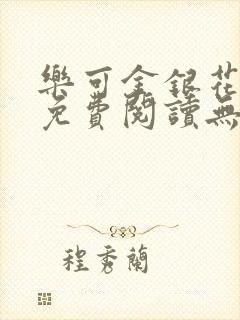 樂可金銀花
免費閱讀無
程秀蘭